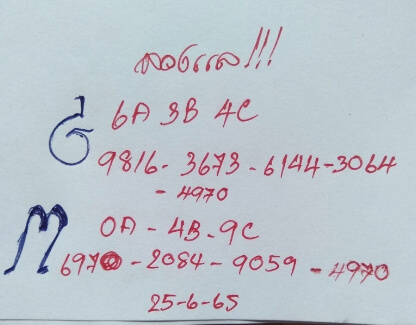 6A 3B 4C
9816 - 3673 - 6144 - 3064
- 4970
M 0A - 4B - 9C
6970 - 2084 - 9059 - 4970
25-6-65